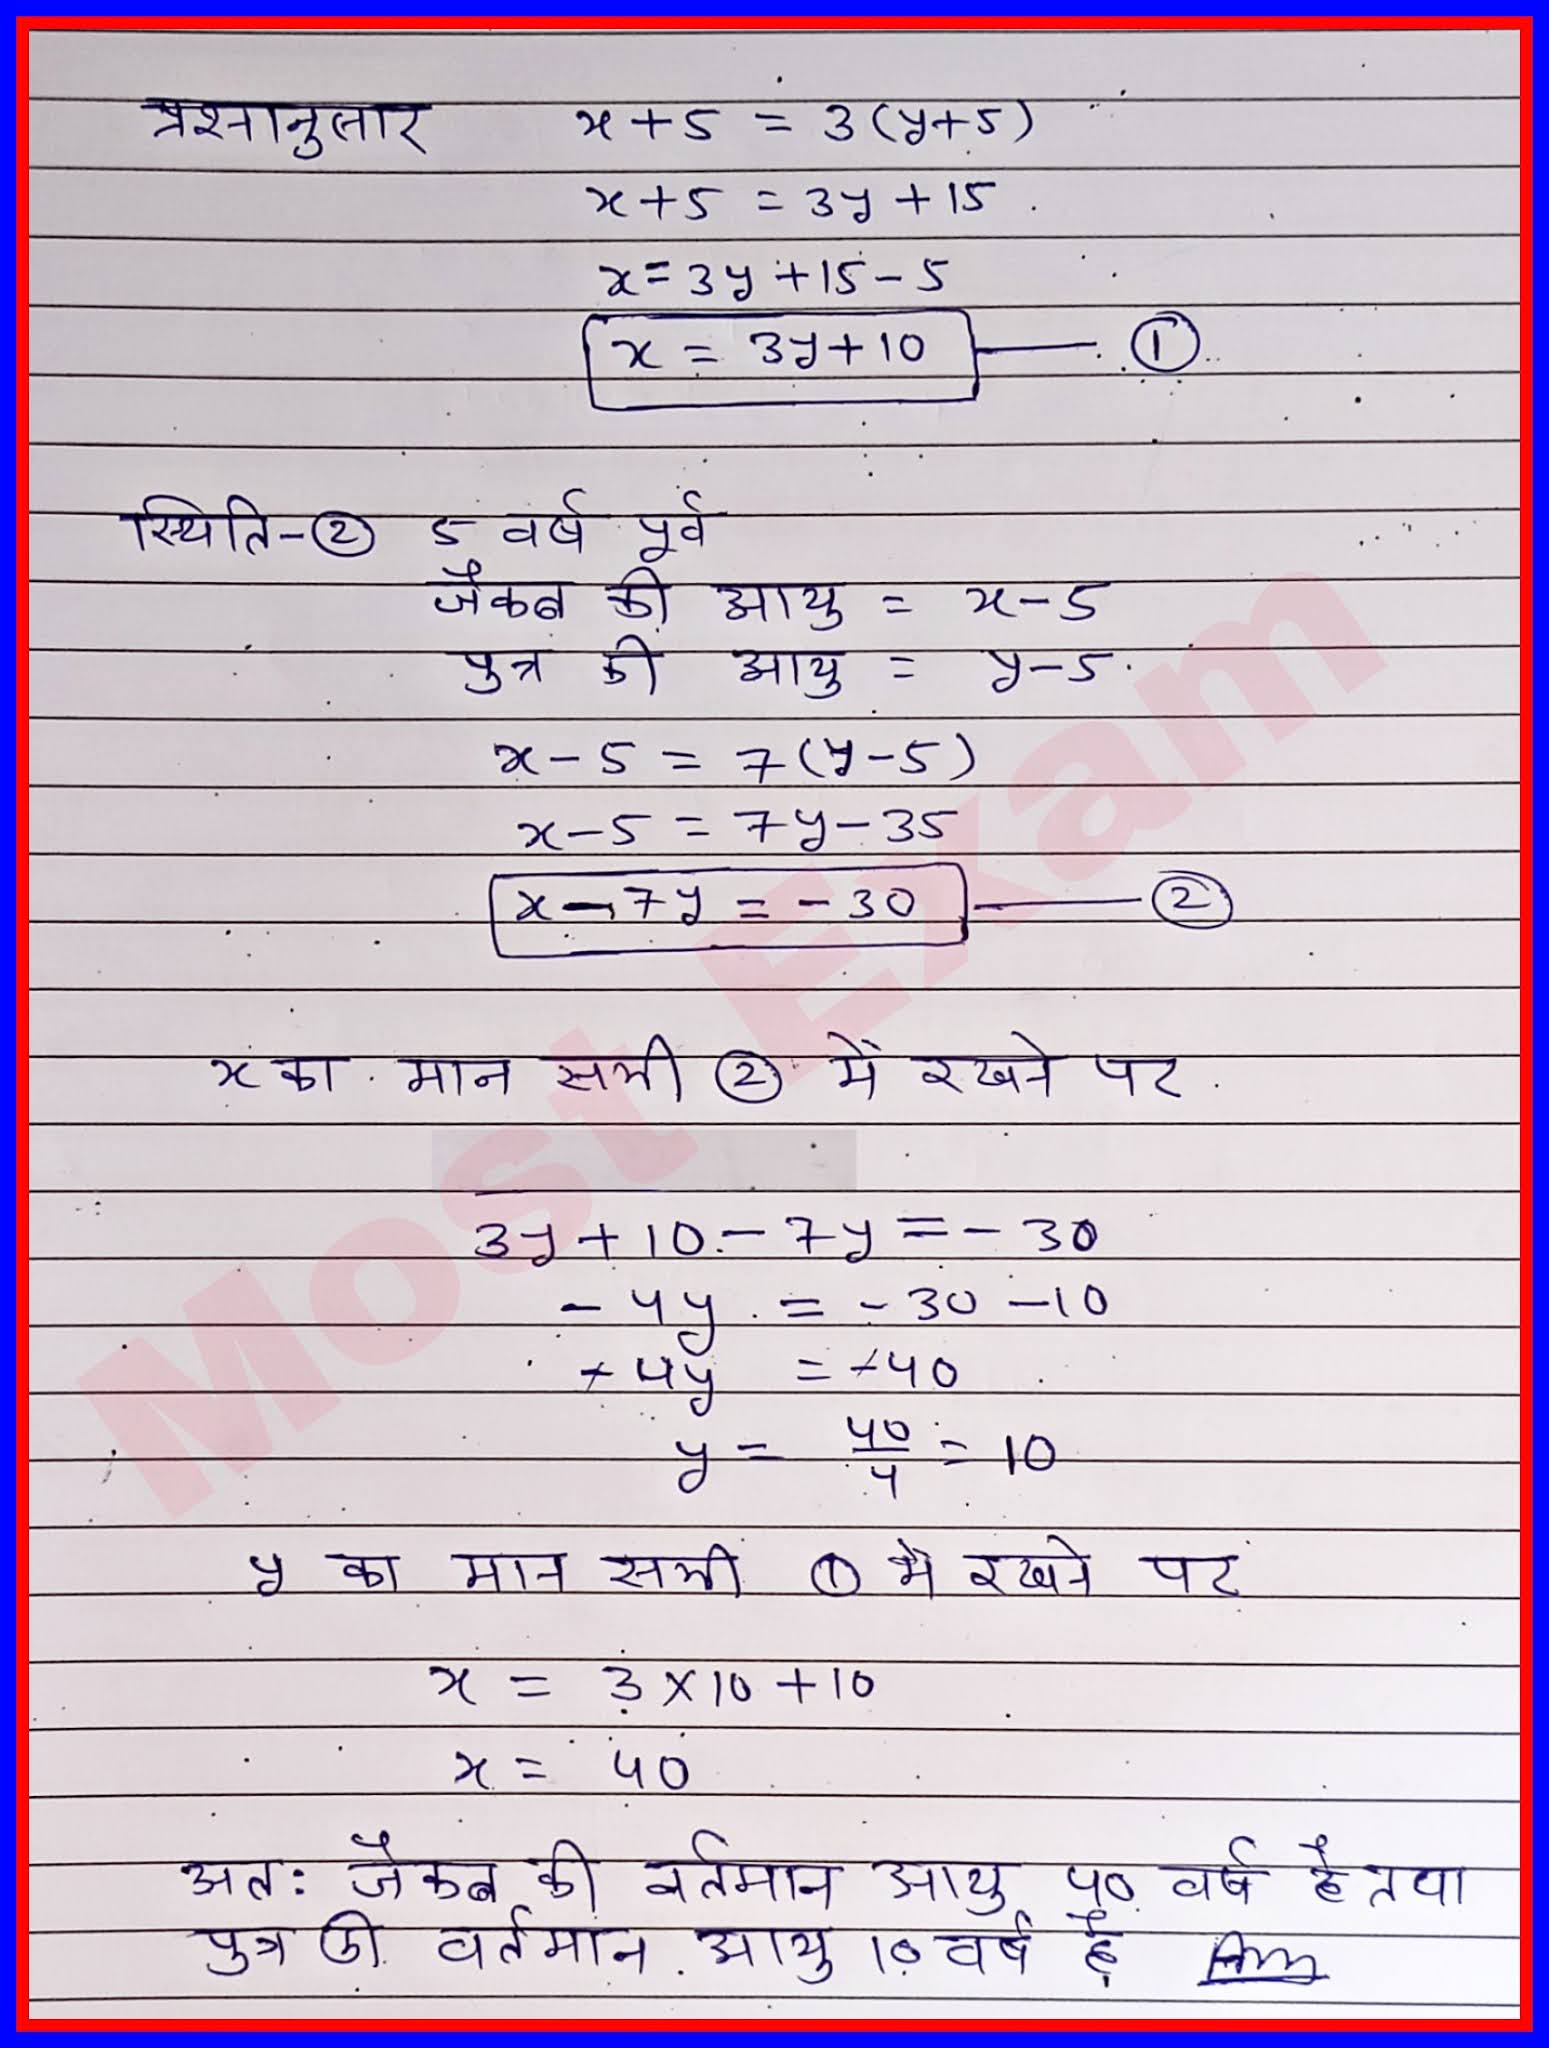 प्रश्नानुसार x+5 = 3(y+5)
x+5 = 3y+15
x=3y+15-5
x = 3y+10 — ①
स्थिति-② 5 वर्ष पूर्व
जैकब की आयु = x-5
पुत्र की आयु = y-5
x-5 = 7(y-5)
x-5 = 7y-35
x-7y = -30 — ②
x का मान समी ② में रखने पर
3y+10-7y=-30
-4y = -30-10
-4y = -40
y = 40/4 = 10
y का मान समी ① में रखने पर
x = 3×10+10
x = 40
अतः जैकब की वर्तमान आयु 40 वर्ष है तथा
पुत्र की वर्तमान आयु 10 वर्ष है Ans
Most Exam